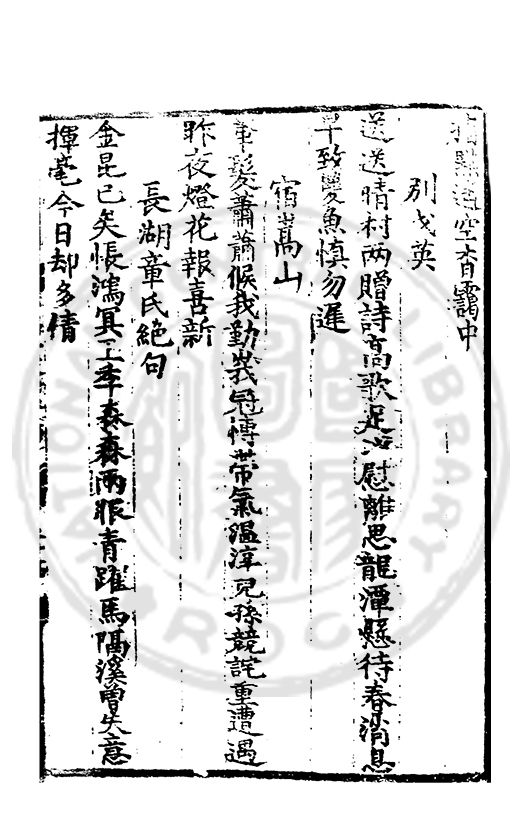 空杳靄中
別戈英
送送晴村兩贈詩高歌足以慰離思龍潭懸待春消息
早致雙魚慎勿遲
宿嵩山
髮蕭蕭候我勤峩冠博帶氣溫淳兒孫競詫重遭遇
昨夜燈花報喜新
長湖童氏絕句
金昆已矣悵鴻冥玉季森森兩眼青躍馬隔溪曾失意
揮毫今日却多情
NATIONAL LIBRARY
R.O.C.